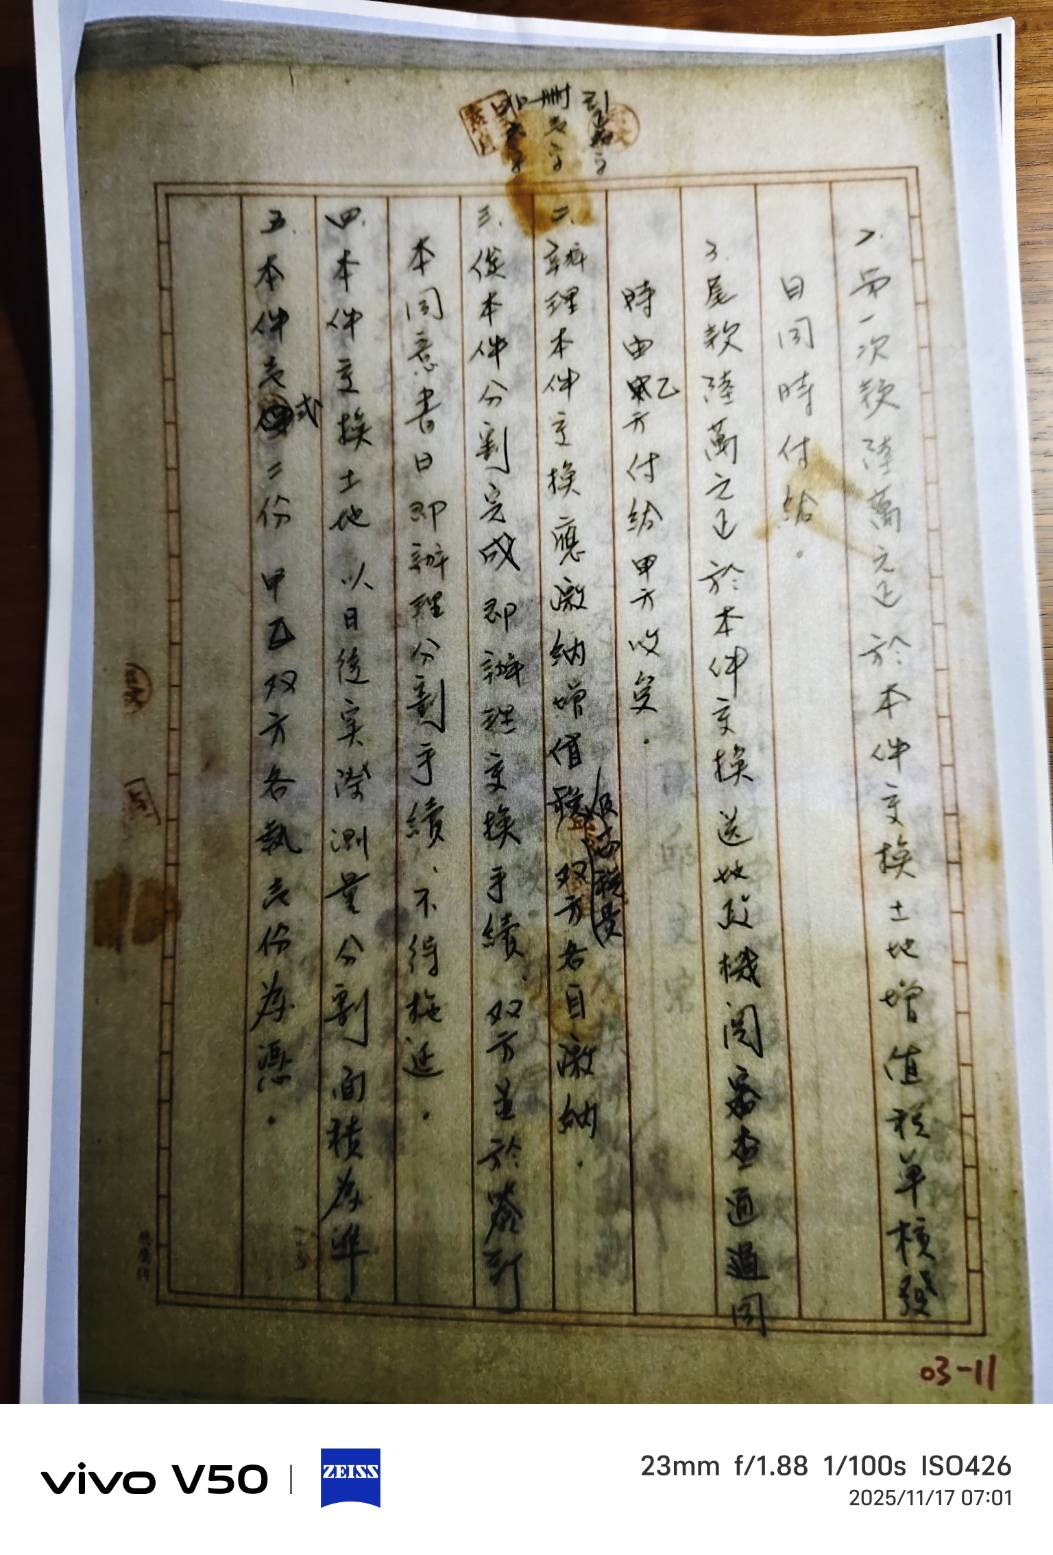 2.第一次款陸萬元正於本件交換土地增值稅單核發
日同時付給.
3.尾款陸萬元正於本件交換送地政機関審查通過同
時由乙方付給甲方收受.
二.辦理本件交換應繳納增值稅双方各自繳納.
三.從本件分割完成即辦理交換手續、双方並於簽訂
本同意書日即辦理分割手續、不待拖延.
四.本件交換土地以日後实際測量分割面積為準.
五.本件壱式二份甲乙双方各執壱份為憑.
03-11
vivo V50
ZEISS
23mm f/1.88 1/100s ISO426
2025/11/17 07:01